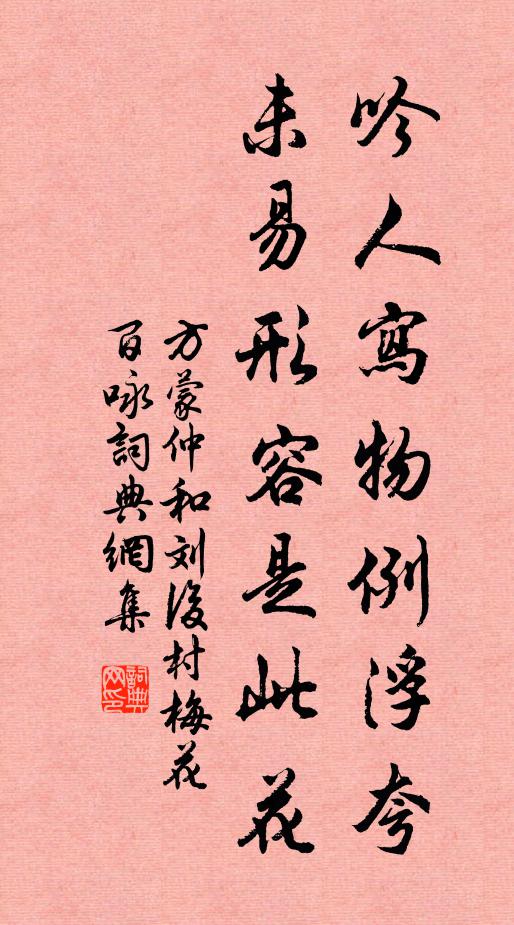 吟人寫物例浮夸
未易形容是此花
方蒙仲和刘後村梅花
百咏詞典網集
詞典
网印